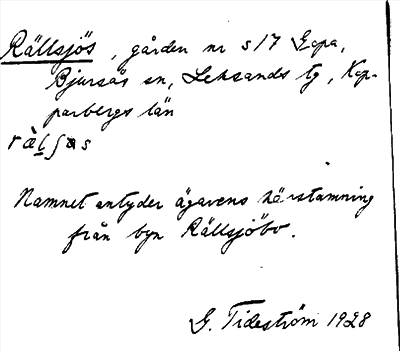 Rällsjös, gården nr s17 Gopa,
Bjursås sn, Leksands tg, Kop-
parbergs län
Namnet antyder ägarens härstamning
från byn Rällsjöbo.
G. Tideström 1928